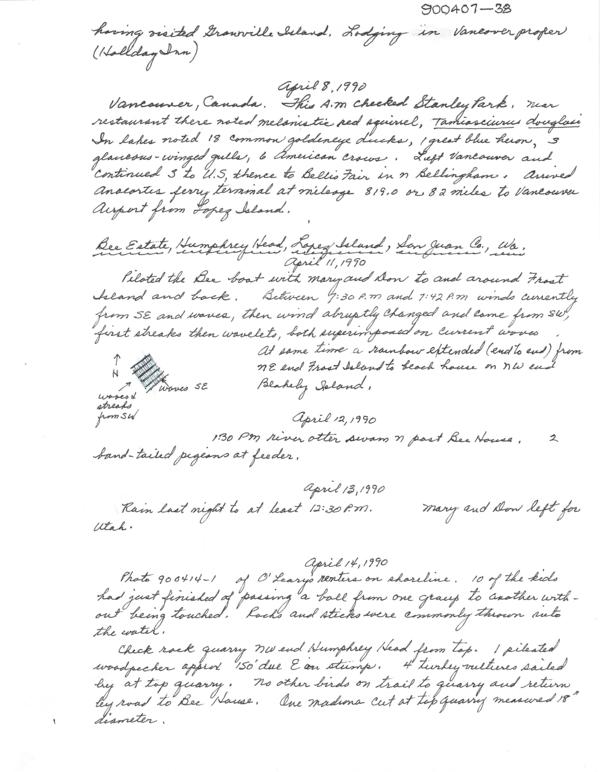 900407-38
having visited Granville Island. Lodging in Vancover proper
(Holiday Inn)
April 8, 1990
Vancouver, Canada. This A.M checked Stanley Park. Near
restaurant there noted melanistic red squirrel, Tamiasciurus douglasi
In lakes noted 18 common goldeneye ducks, 1 great blue heron, 3
glaucous-winged gulls, 6 American crows. Left Vancouver and
continued S to U.S, thence to Bellis Fair in N Bellingham. Arrived
Anacortes ferry terminal at mileage 819.0 or 82 miles to Vancouver
Airport from Lopez Island.
Bee Estate, Humphrey Head, Lopez Island, San Juan Co., Wa.
April 11, 1990
Piloted the Bee boat with Mary and Don to and around Frost
Island and back. Between 7:30 P.M and 7:42 PM winds currently
from SE and waves, then wind abruptly changed and came from SW,
first streaks then wavelets, both superimposed on current waves.
At same time a rainbow extended (end to end) from
NE end Frost Island to beach house on NW end
Blakely Island.
N
waves SE
waves &
streaks
from SW
April 12, 1990
1:30 PM river otter swam N past Bee House. 2
band-tailed pigeons at feeder.
April 13, 1990
Rain last night to at least 12:30 P.M. Mary and Don left for
Utah.
April 14, 1990
Photo 900414-1 of O'Leary's renters on shoreline. 10 of the kids
had just finished of passing a ball from one group to another with-
out being touched. Rocks and sticks were commonly thrown into
the water.
Check rock quarry NW end Humphrey Head from top. 1 pileated
woodpecker approx 150' due E on stump. 4 turkey vultures sailed
by at top quarry. No other birds on trail to quarry and return
by road to Bee House. One madrona cut at top quarry measured 18"
diameter.